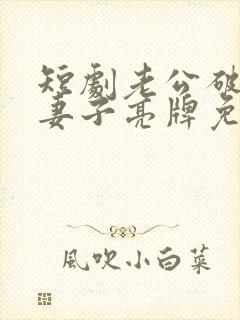 短劇老公破
妻子亮牌免
風吹小白菜